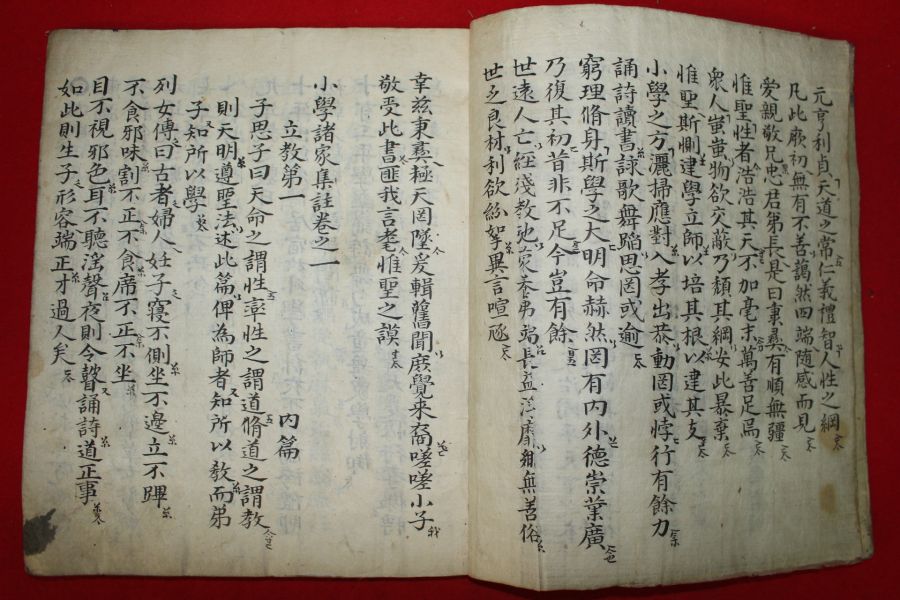 元亨利貞天道之常仁義禮智人性之綱
凡此厥初無有不善藹然四端隨感而見
愛親敬兄忠君弟長是曰秉彝有順無疆
惟聖性者浩浩其天不加毫末萬善足焉
衆人蚩蚩物欲交蔽乃頹其綱安此暴棄
惟聖斯惻建學立師以培其根以達其支
小學之方灑掃應對入孝出恭動罔或悖行有餘力
誦詩讀書詠歌舞蹈思罔或逾
窮理脩身斯學之大明命赫然罔有內外德崇業廣
乃復其初昔非不足今豈有餘
世遠人亡經殘教弛蒙養弗端長益浮靡鄉無善俗
世乏良材利欲紛挐異言喧豗
幸茲秉彝極天罔墜爰輯舊聞庶覺來裔嗟嗟小子
敬受此書匪我言耄惟聖之謨
小學諸家集註卷之一
立教第一 內篇
子思子曰天命之謂性率性之謂道脩道之謂教
則天明遵聖法述此篇俾為師者知所以教而弟
子知所以學
列女傳曰古者婦人妊子寢不側坐不邊立不蹕
不食邪味割不正不食席不正不坐
目不視邪色耳不聽淫聲夜則令瞽誦詩道正事
如此則生子形容端正才過人矣